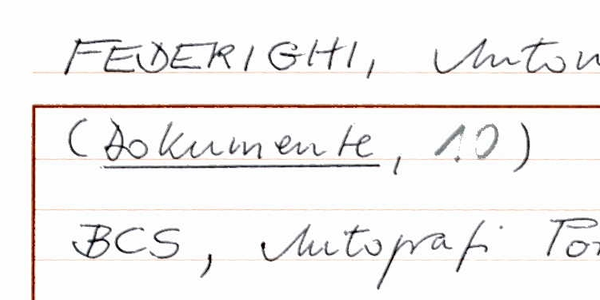 FEDERIGHI, Anton
(Dokumente, 10)
BCS, Autografi Por